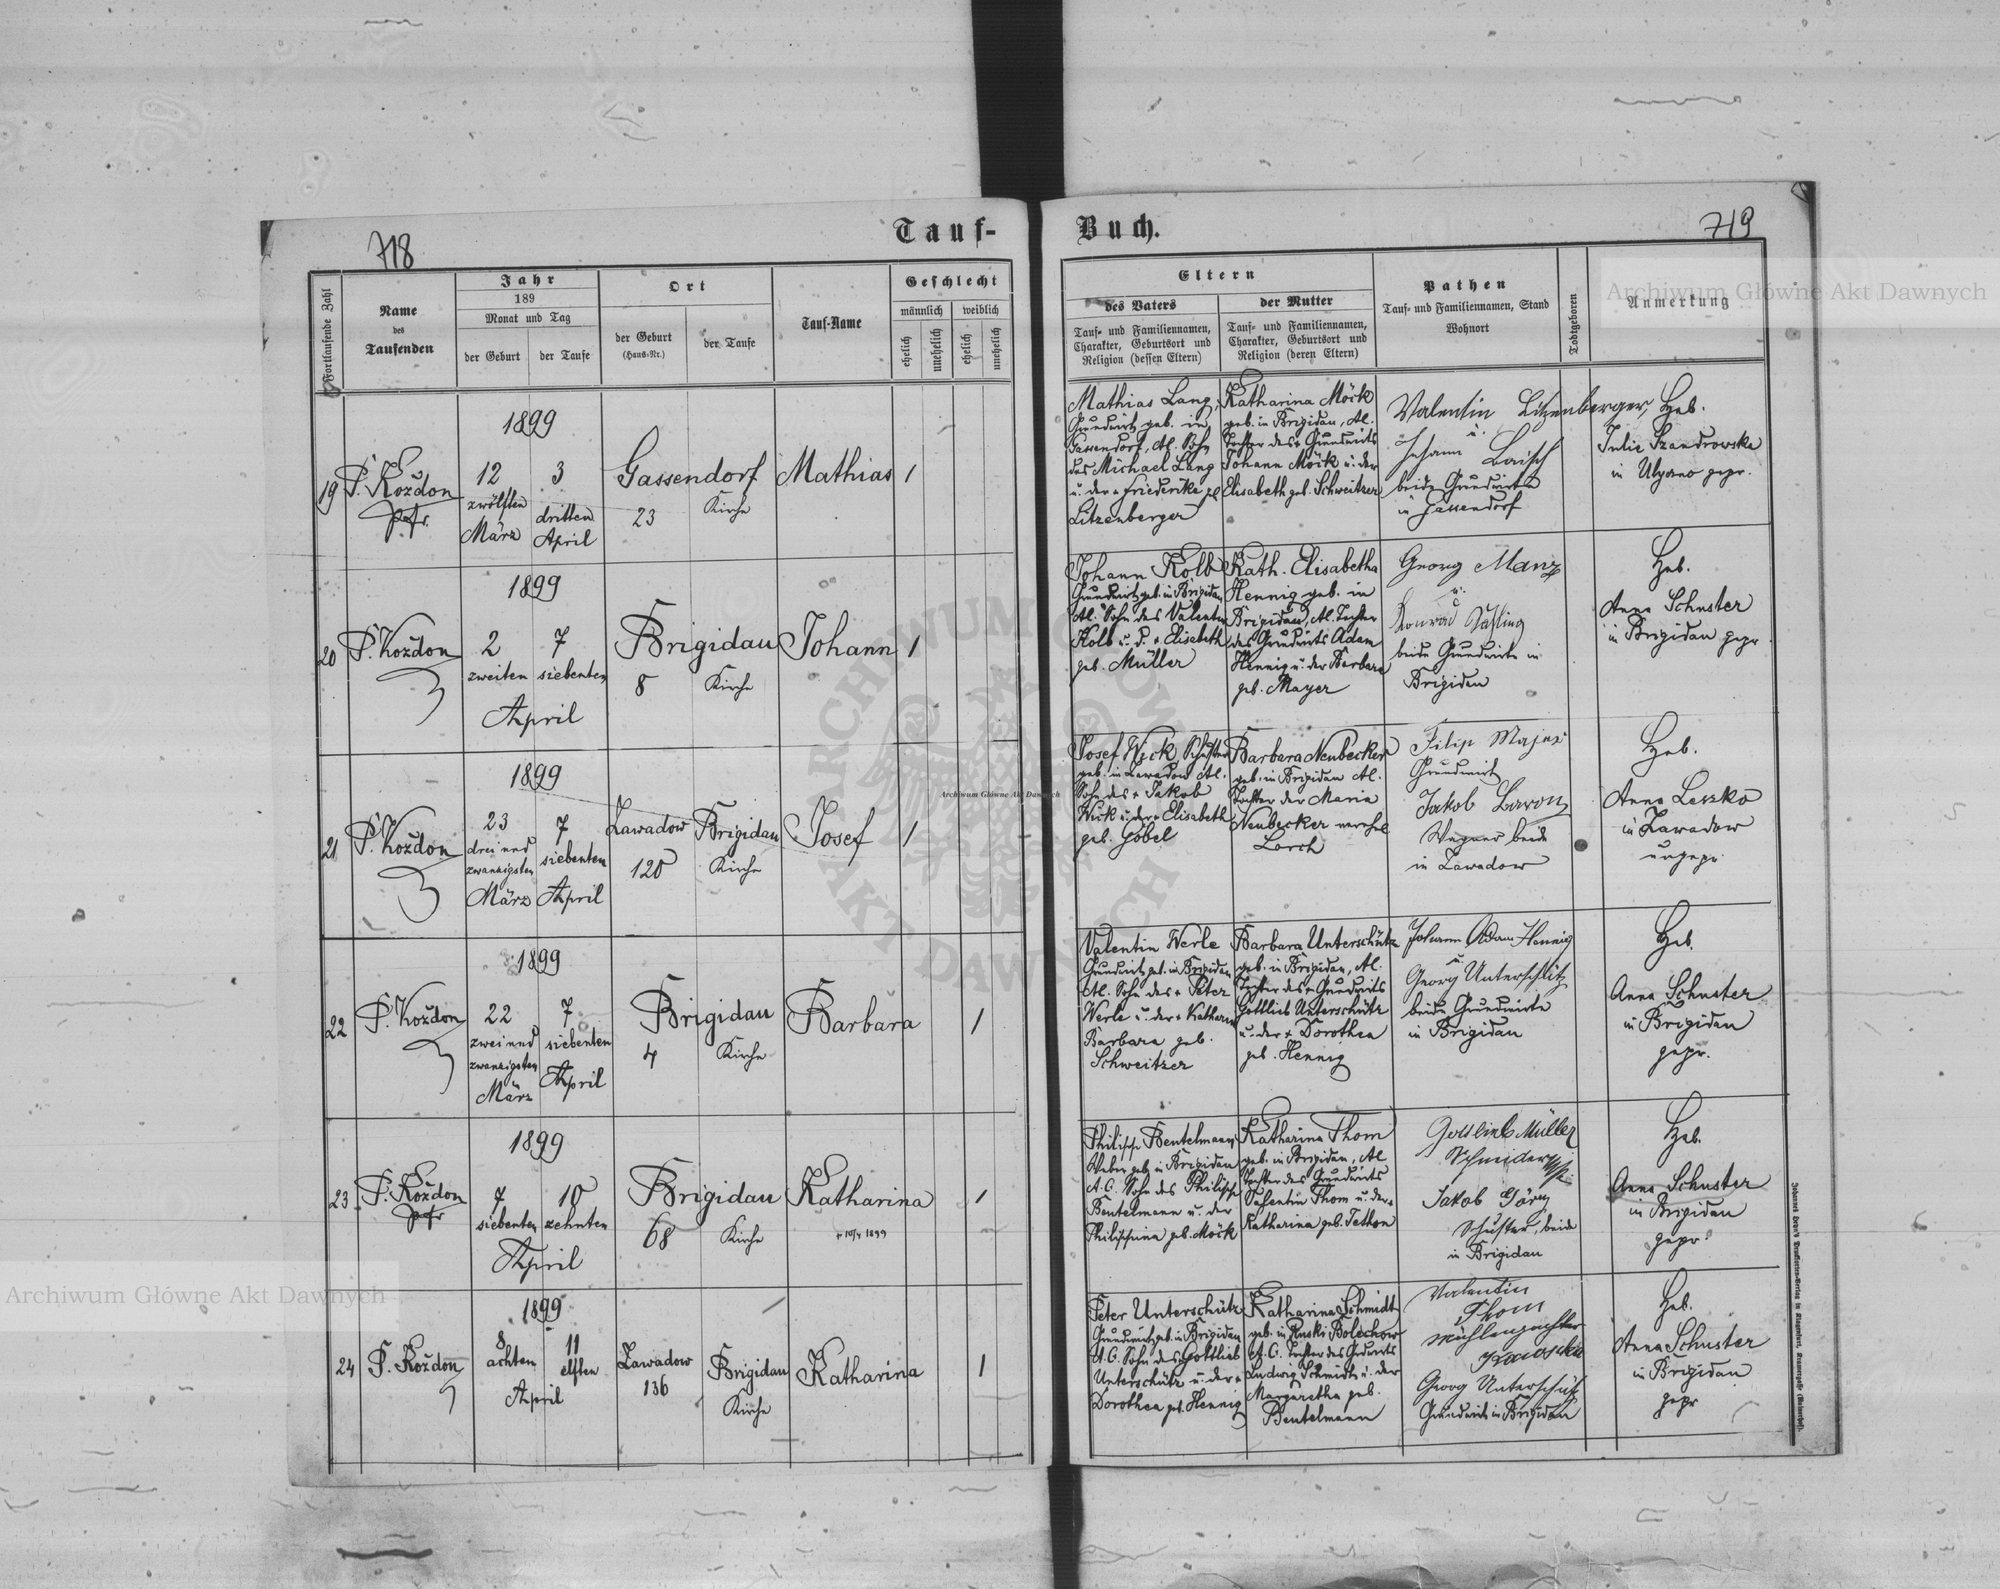 718
Tauf-
Fortlaufende Zahl
Name
des
Taufenden
Jahr
189
Monat und Tag
der Geburt
der Taufe
Ort
der Geburt
(Haus-Nr.)
der Taufe
Tauf-Name
Geschlecht
männlich
weiblich
ehelich
unehelich
ehelich
unehelich
19
P. Koždon
pfr.
1899
12
zwölften
März
3
dritten
April
Gassendorf
23
Kirche
Mathias
1
20
P. Koždon
1899
2
zweiten
7
siebenten
April
Brigidau
8
Kirche
Johann
1
21
P. Koždon
1899
23
drei und
zwanzigsten
März
7
siebenten
April
Zawadow
120
Brigidau
Kirche
Josef
1
22
P. Koždon
1899
22
zwei und
zwanzigsten
März
7
siebenten
April
Brigidau
4
Kirche
Barbara
1
23
P. Koždon
pfr
1899
7
siebenten
10
zehnten
April
Brigidau
68
Kirche
Katharina
+ 10/4 1899
1
24
P. Koždon
1899
8
achten
11
elften
April
Zawadow
136
Brigidau
Kirche
Katharina
1
Buch.
719
Eltern
des Vaters
Tauf- und Familiennamen,
Charakter, Geburtsort und
Religion (dessen Eltern)
der Mutter
Tauf- und Familiennamen,
Charakter, Geburtsort und
Religion (deren Eltern)
Pathen
Tauf- und Familiennamen, Stand
Wohnort
Todtgeboren
Anmerkung
Mathias Lang,
Grundwirt geb. in
Gassendorf, A.C. Sohn
des Michael Lang
u. der + Friederike geb
Litzenberger
Katharina Möck
geb. in Brigidau, A.C.
Tochter des + Grundwirts
Johann Möck u. der
Elisabeth geb. Schweitzer
Valentin Litzenberger,
u.
Johann Baisch
beide Grundwirte
in Gassendorf
Heb.
Julie Szandrowska
in Ulyczno gepr.
Johann Kolb
Grundwirt geb. in Brigidau
A.C. Sohn des Valentin
Kolb u. d. + Elisabeth
geb. Müller
Kath. Elisabetha
Hennig geb. in
Brigidau, A.C. Tochter
des Grundwirts Adam
Hennig u. der Barbara
geb. Mayer
Georg Manz
u.
Konrad
beide Grundwirte in
Brigidau
Heb.
Anna Schuster
in Brigidau gepr
Josef Wick, Schuster
geb. in Zawadow A.C.
Sohn des + Jakob
Wick u. der + Elisabeth
geb. Göbel
Barbara Neubecker
geb. in Brigidau A.C.
Tochter der Maria
Neubecker verehel
Lorch
Filip Majer
Grundwirt
Jakob Baron
Wagner beide
in Zawadow
Heb.
Anna Leszko
in Zawadow
ungepr.
Valentin Werle
Grundwirt geb. in Brigidau
A.C. Sohn des + Peter
Werle u. der + Katharina
Barbara geb.
Schweitzer
Barbara Unterschütz
geb. in Brigidau, A.C.
Tochter des + Grundwirts
Gottlieb Unterschütz
u. der + Dorothea
geb. Hennig
Johann Adam Hennig
u.
Georg Unterschütz
beide Grundwirte
in Brigidau
Heb.
Anna Schuster
in Brigidau
gepr.
Philipp Beutelmann,
Weber geb. in Brigidau
A.C. Sohn des Philipp
Beutelmann u. der
Philippina geb. Möck
Katharina Thom
geb. in Brigidau, A.C
Tochter des Grundwirts
Valentin Thom u. der +
Katharina geb. Tetlon
Gottlieb Müller
Schneider
Jakob Göres
Schuster, beide
in Brigidau
Heb.
Anna Schuster
in Brigidau
gepr.
Peter Unterschütz
Grundwirt geb. in Brigidau
A.C. Sohn des Gottlieb
Unterschütz u. der +
Dorothea geb. Hennig
Katharina Schmidt
geb. in Ruski Bolechow
A.C. Tochter des Grdwirts
Ludwig Schmidt u. der
Margaretha geb.
Beutelmann
Valentin
Thom
Mühlenpächter
Georg Unterschütz
Grundwirt in Brigidau
Heb.
Anna Schuster
in Brigidau
gepr
Archiwum Główne Akt Dawnych
Archiwum Główne Akt Dawnych
Archiwum Główne Akt Dawnych
ARCHIWUM GŁÓWNE
AKT DAWNYCH